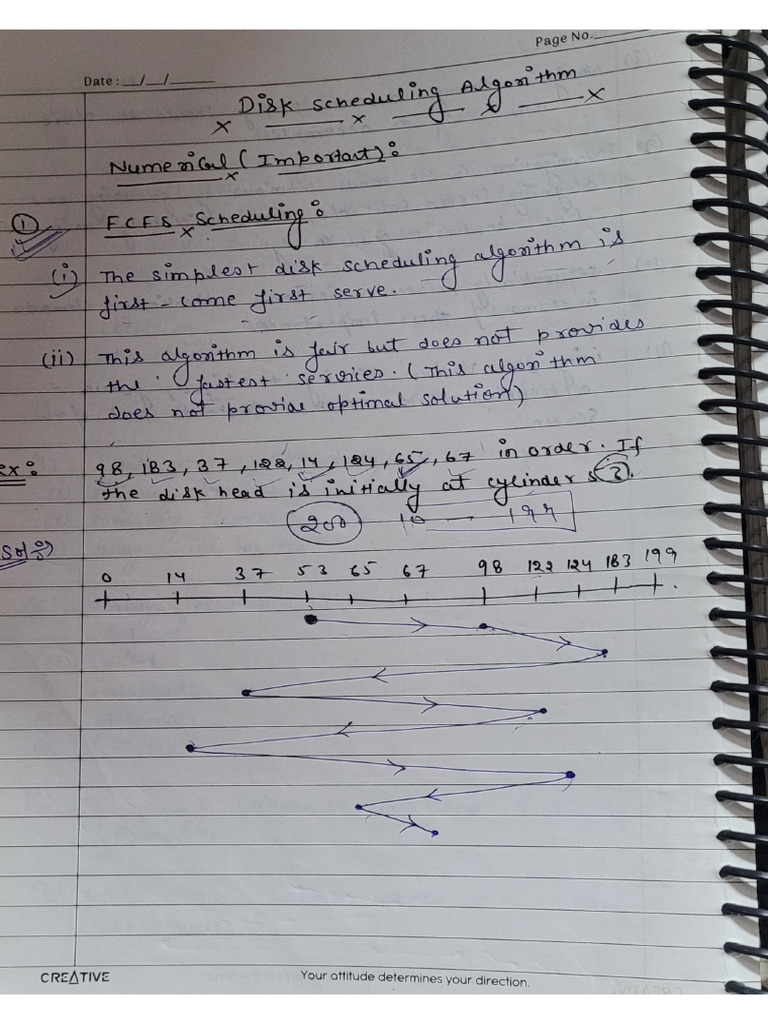 Page No.
Date : __/__/____
Disk Scheduling Algorithm
x x x x
Numerical (Important):
x
① FCFS Scheduling:
x
(i) The simplest disk scheduling algorithm is
first-come first serve.
(ii) This algorithm is fair but does not provides
the fastest services. (This algorithm
does not provide optimal solution)
ex: 98, 183, 37, 122, 14, 124, 65, 67 in order. If
the disk head is initially at cylinder 53.
200 10 — 199
Solⁿ:
0 14 37 53 65 67 98 122 124 183 199
CREATIVE
Your attitude determines your direction.